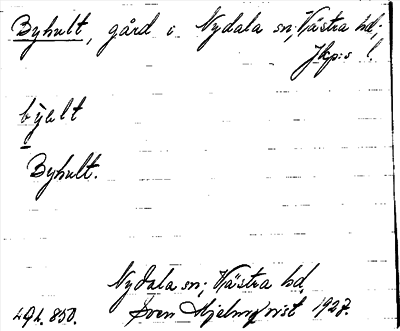 Byhult, gård i Nydala sn; Västra hd;
Jkp:s l.
býelt
Byhult.
Nydala sn; Västra hd.
Sven Hjelmqvist 1927.